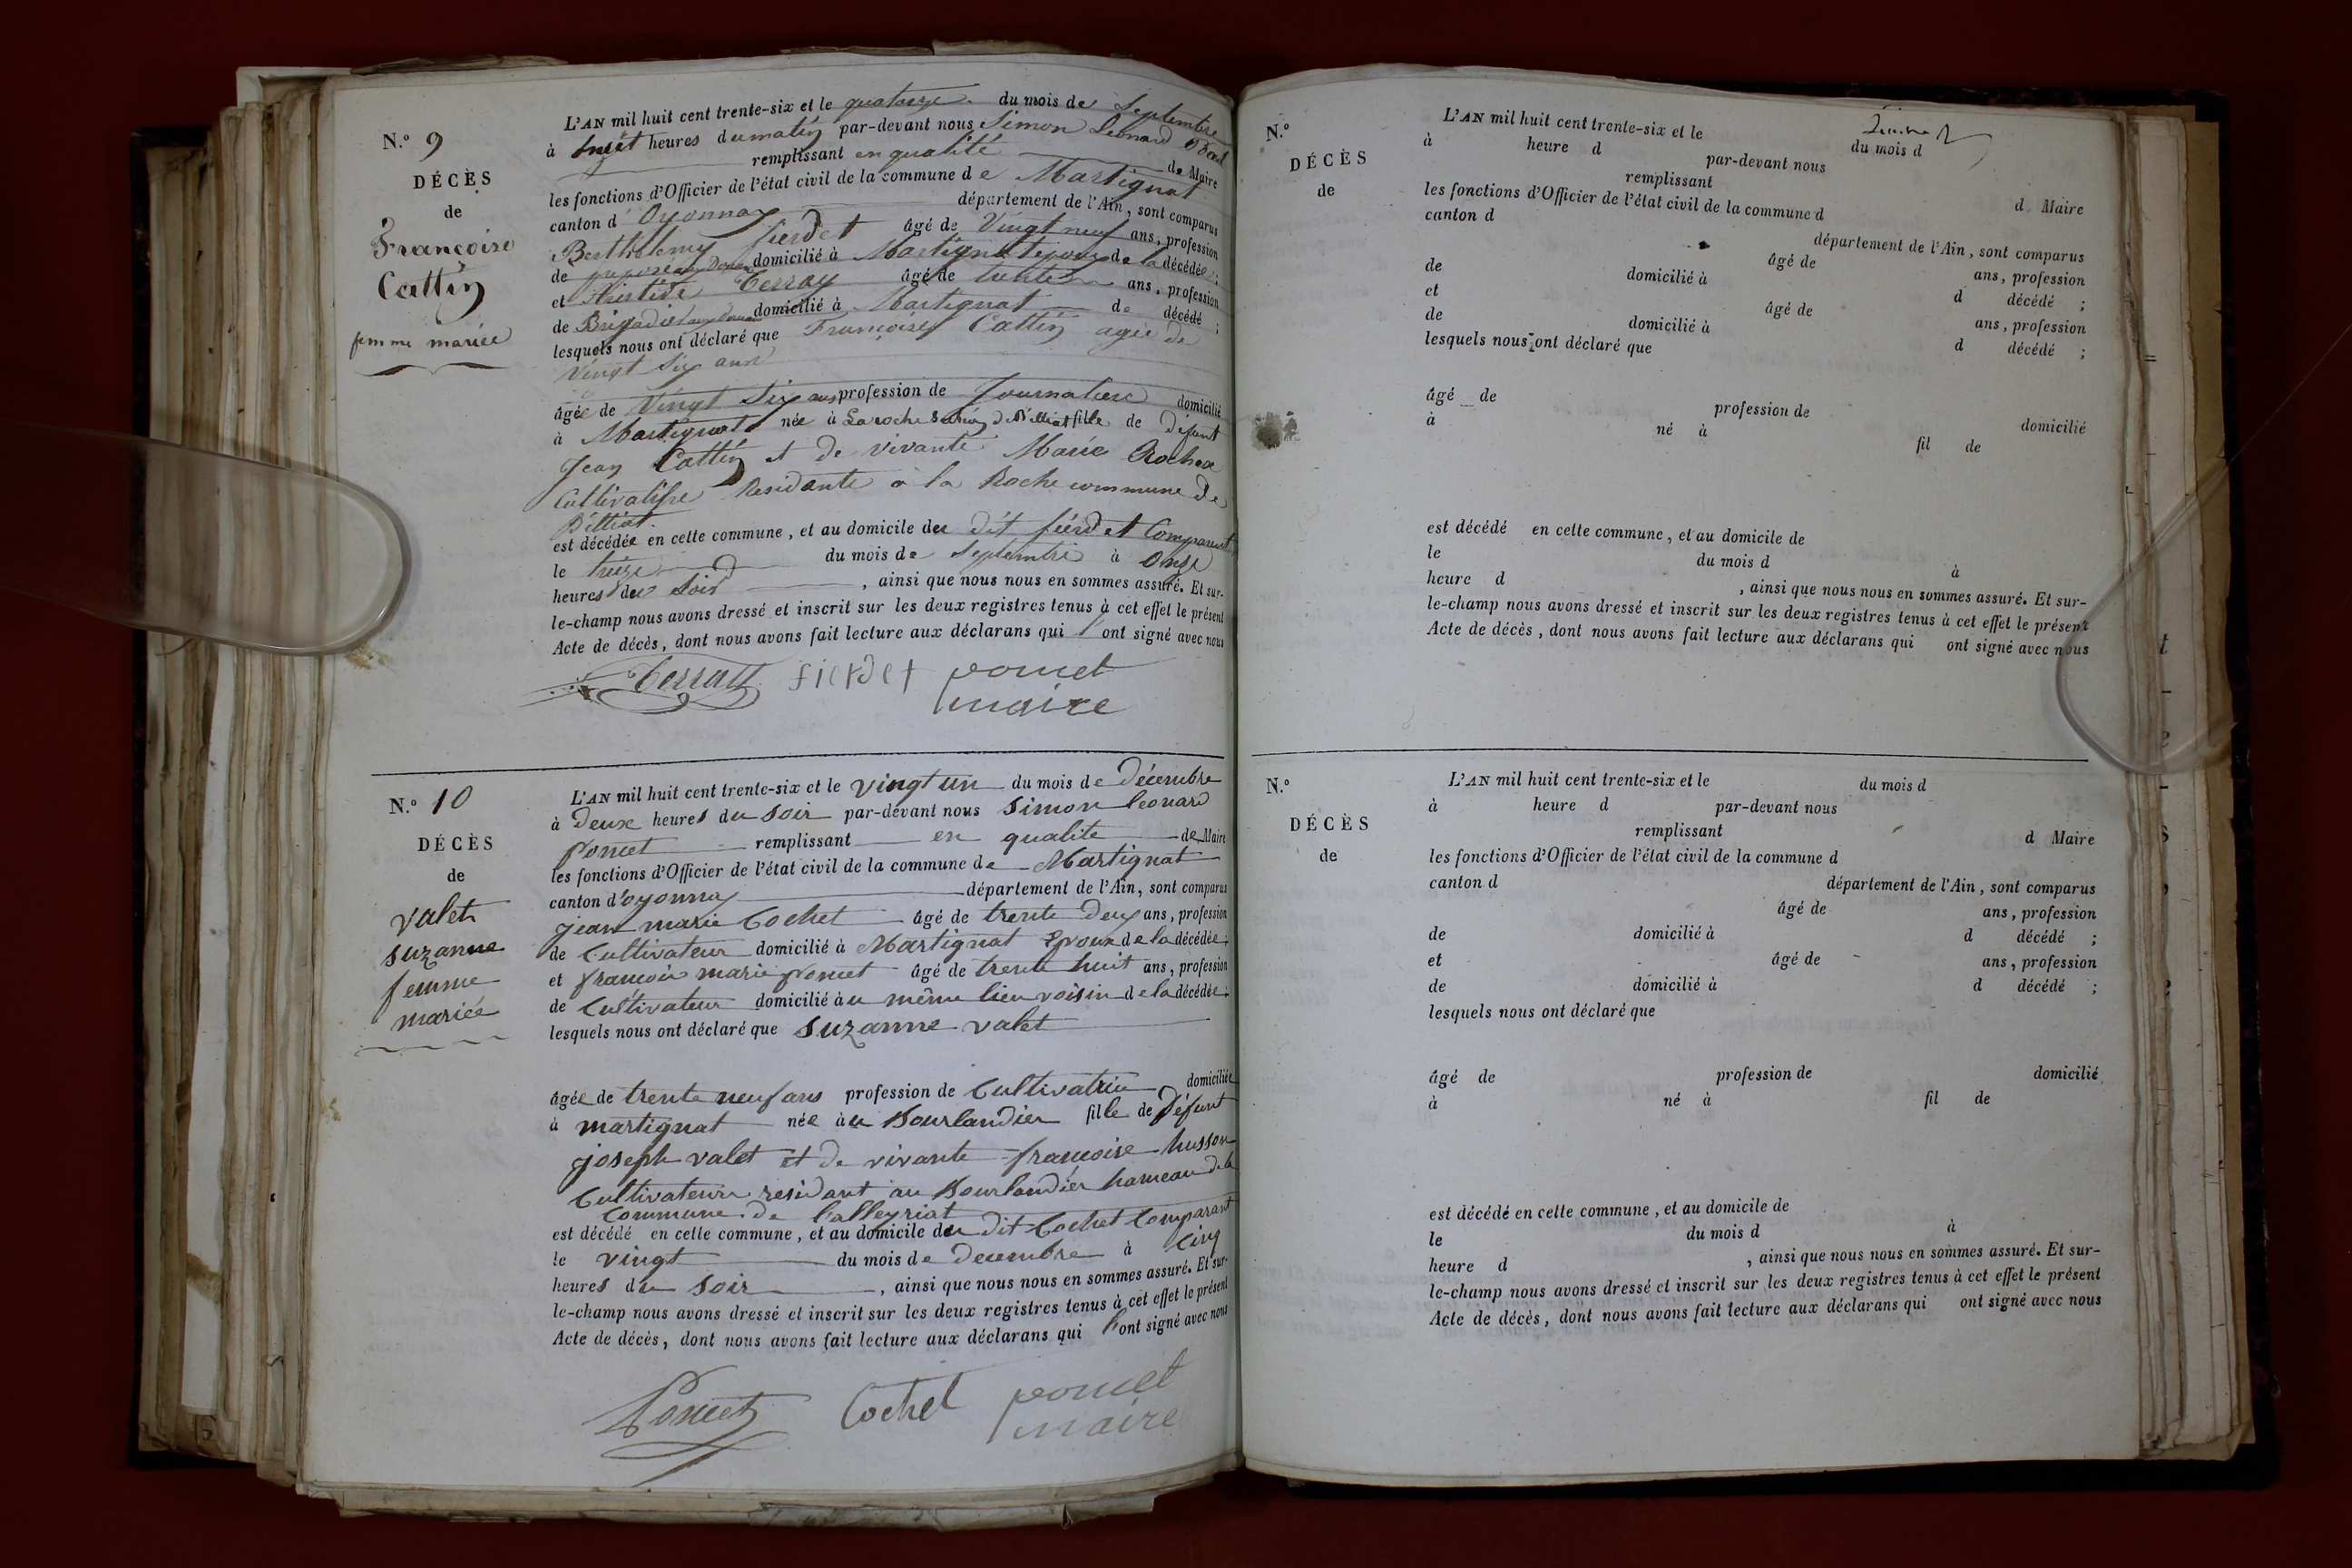 N.º 9
DÉCÈS
de
Françoise
Cattin
femme mariée
L'AN mil huit cent trente-six et le quatorze du mois de Septembre
à huit heures du matin par-devant nous Simon Léonard
remplissant en qualité de Maire
les fonctions d'Officier de l'état civil de la commune de Martignat
canton d'Oyonnax département de l'Ain, sont comparus
Berthelemy fierdet âgé de Vingt neuf ans, profession
de preposé aux Douanes domicilié à Martignat epoux de la décédée ;
et Terray âgé de trente ans, profession
de Brigadier aux Douanes domicilié à Martignat de décédé ;
lesquels nous ont déclaré que Françoise Cattin agée de
Vingt Six ans
âgée de Vingt Six ans profession de Journaliere domicilié
à Martignat née à La roche de Belliat fille de défunt
Jean Cattin et de vivante Marie Rochaix
Cultivatrice Residante à la Roche commune de
est décédée en cette commune, et au domicile du dit fierdet Comparant
le treize du mois de Septembre à Onze
heures du Soir , ainsi que nous nous en sommes assuré. Et sur-
le-champ nous avons dressé et inscrit sur les deux registres tenus à cet effet le présent
Acte de décès, dont nous avons fait lecture aux déclarans qui l'ont signé avec nous
Terray fierdet poncet
maire
N.º 10
DÉCÈS
de
Valet
suzanne
femme
mariée
L'AN mil huit cent trente-six et le vingt un du mois de décembre
à deux heures du soir par-devant nous simon leonard
poncet remplissant en qualite de Maire
les fonctions d'Officier de l'état civil de la commune de Martignat
canton d'oyonnax département de l'Ain, sont comparus
jean marie Cochet âgé de trente deux ans, profession
de Cultivateur domicilié à Martignat Epoux de la décédée ;
et françois marie poncet âgé de trente huit ans, profession
de Cultivateur domicilié au même lieu voisin de la décédée ;
lesquels nous ont déclaré que suzanne valet
âgée de trente neuf ans profession de Cultivatrice domiciliée
à martignat née au Bourlandier fille de défunt
joseph valet et de vivante françoise husson
Cultivateurs residant au Bourlandier hameau de la
Commune de Calleyriat
est décédé en cette commune, et au domicile du dit Cochet Comparant
le vingt du mois de decembre à cinq
heures du soir , ainsi que nous nous en sommes assuré. Et sur-
le-champ nous avons dressé et inscrit sur les deux registres tenus à cet effet le présent
Acte de décès, dont nous avons fait lecture aux déclarans qui l'ont signé avec nous
Poncet Cochet poncet
maire
N.º
DÉCÈS
de
L'AN mil huit cent trente-six et le du mois d
à heure d par-devant nous
remplissant d Maire
les fonctions d'Officier de l'état civil de la commune d
canton d département de l'Ain, sont comparus
âgé de ans, profession
de domicilié à d décédé ;
et âgé de ans, profession
de domicilié à d décédé ;
lesquels nous ont déclaré que
âgé de profession de domicilié
à né à fil de
est décédé en cette commune, et au domicile de
le du mois d à
heure d , ainsi que nous nous en sommes assuré. Et sur-
le-champ nous avons dressé et inscrit sur les deux registres tenus à cet effet le présent
Acte de décès, dont nous avons fait lecture aux déclarans qui ont signé avec nous
N.º
DÉCÈS
de
L'AN mil huit cent trente-six et le du mois d
à heure d par-devant nous
remplissant d Maire
les fonctions d'Officier de l'état civil de la commune d
canton d département de l'Ain, sont comparus
âgé de ans, profession
de domicilié à d décédé ;
et âgé de ans, profession
de domicilié à d décédé ;
lesquels nous ont déclaré que
âgé de profession de domicilié
à né à fil de
est décédé en cette commune, et au domicile de
le du mois d à
heure d , ainsi que nous nous en sommes assuré. Et sur-
le-champ nous avons dressé et inscrit sur les deux registres tenus à cet effet le présent
Acte de décès, dont nous avons fait lecture aux déclarans qui ont signé avec nous